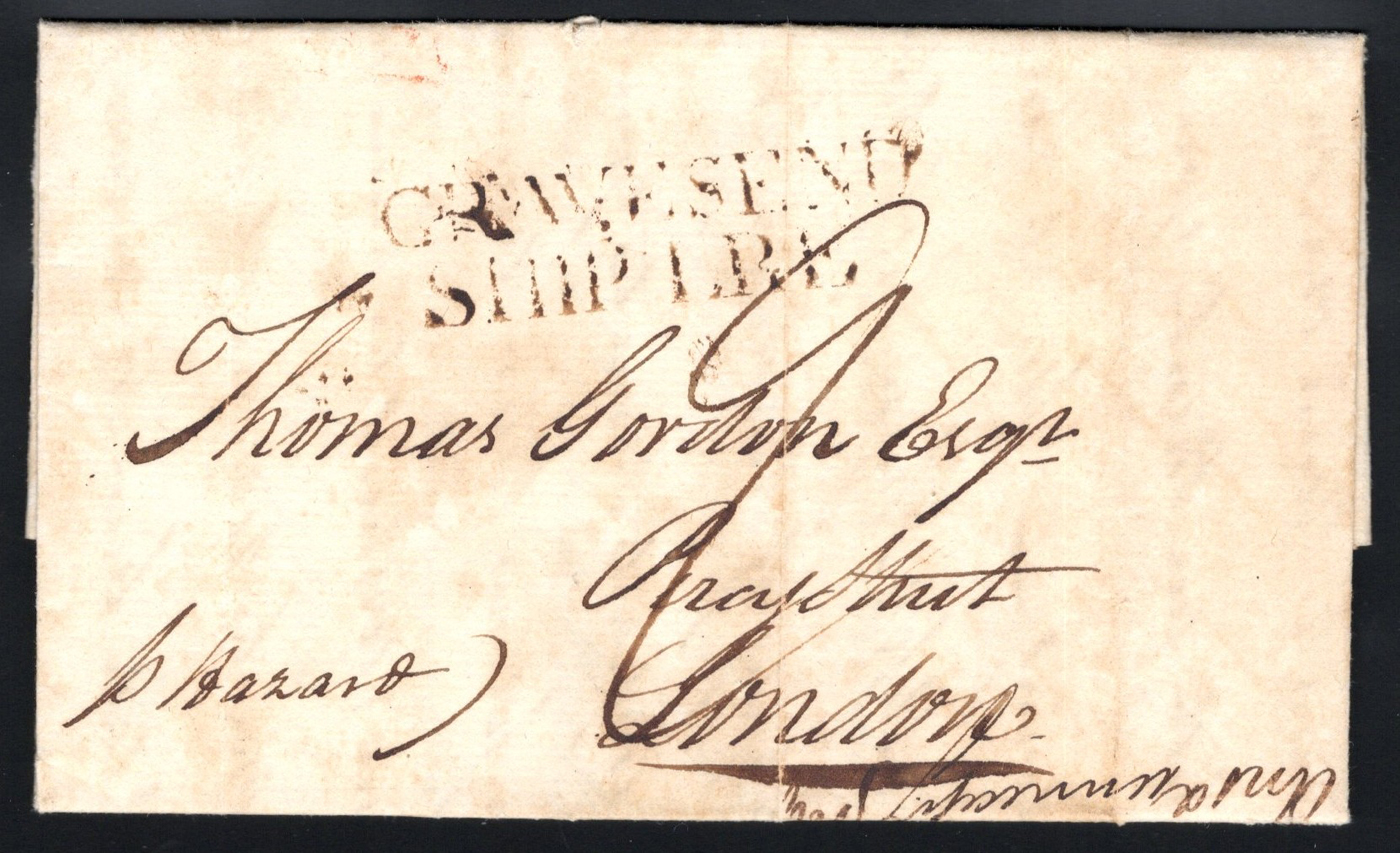 GRAVESEND
SHIP LRE
Thomas Gordon Esqr
Street
London
p Hazard